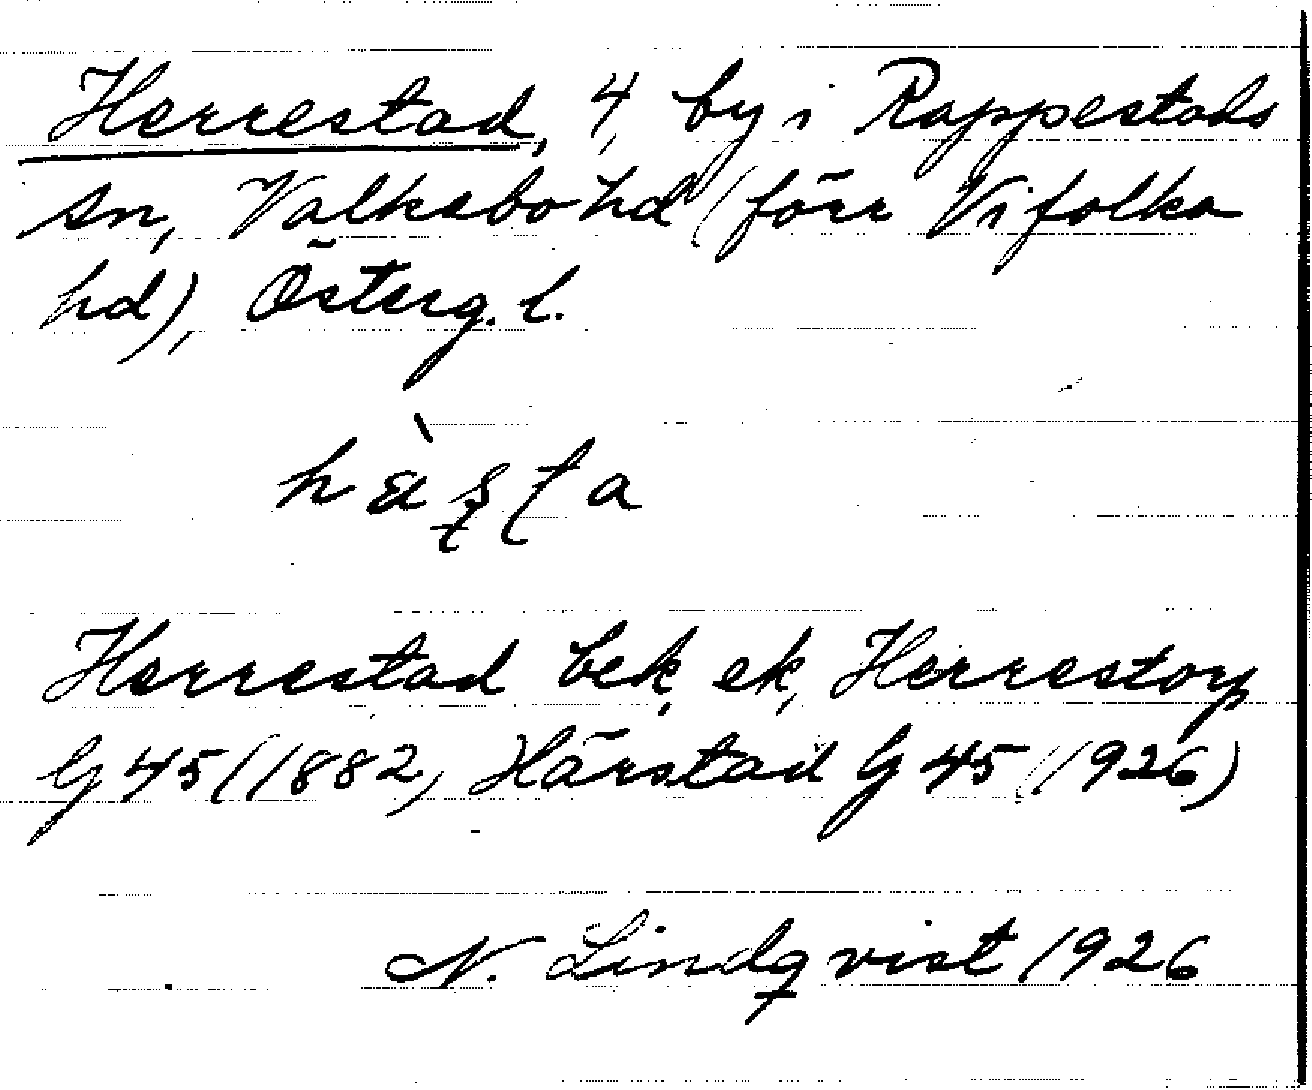 Herrestad, 4, by i Rappestads
sn, Valkebo hd (förr Vifolka
hd), Österg. l.
Herrestad bek, ek, Herrestorp
G 45 (1882, Härstad G 45 (1926)
N. Lindqvist 1926